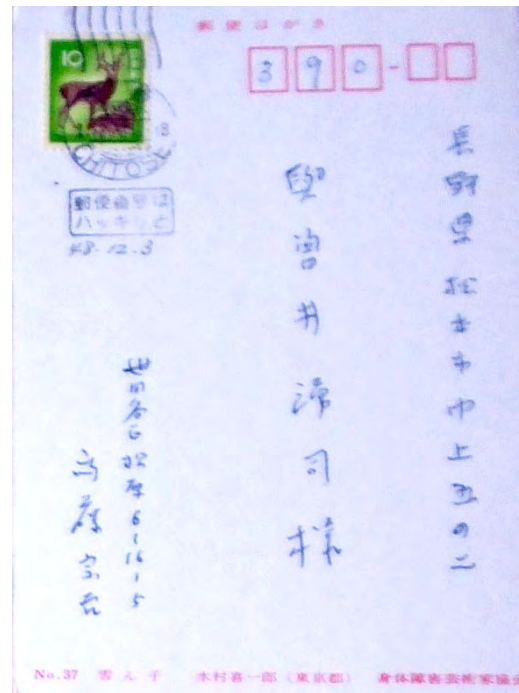 郵便はがき
10
390
CHITOSE
郵便番号は
ハッキリと
48.12.3
長野県松本市巾上五の二
曽井 司様
世田谷区松原6-16-5
No.37 雪ん子 木村喜一郎(東京都) 身体障害芸術家協会